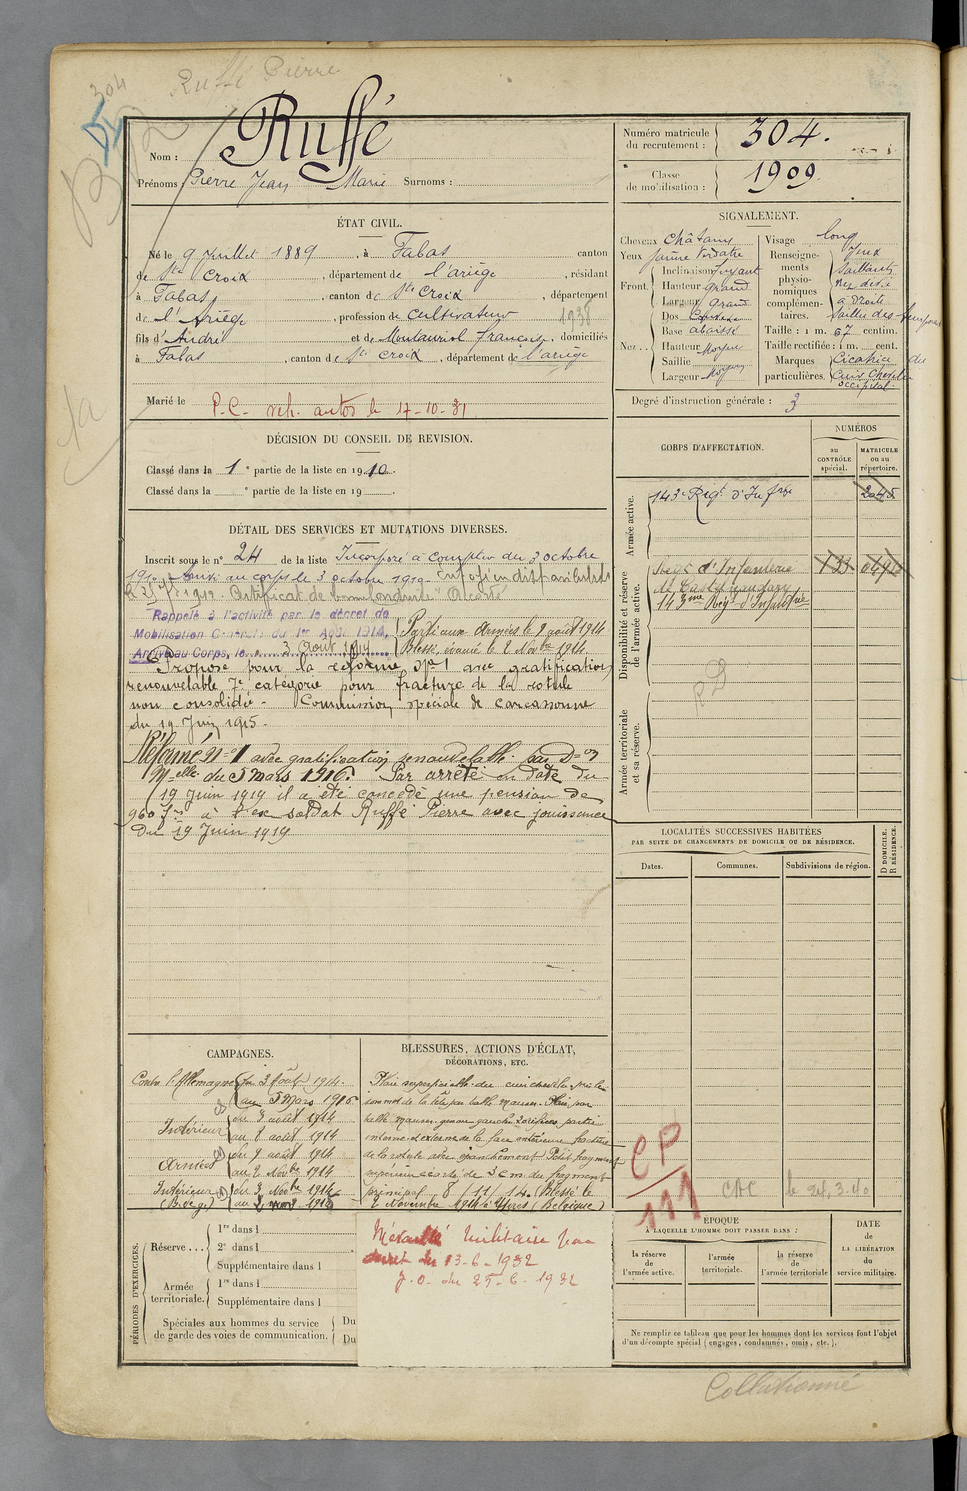 304
Ruffé Pierre
Nom : Ruffé
Prénoms : Pierre Jean Marie Surnoms :
Numéro matricule du recrutement : 304.
Classe de mobilisation : 1909
ÉTAT CIVIL.
Né le 9 Juillet 1889, à Fabas canton
de Ste Croix, département de l'ariège, résidant
à Fabas, canton de Ste Croix, département
de l'Ariège, profession de cultivateur
1938
fils d'André et de Montauriol françoise, domiciliés
à Fabas, canton de Ste Croix, département de l'ariège
Marié le
P.C. veh. autos le 17-10-31
SIGNALEMENT.
Cheveux châtains
Yeux jaune verdatre
Front. Inclinaison fuyant
Hauteur grand
Largeur grand
Nez Dos
Base abaissé
Hauteur Moyen
Saillie
Largeur Moyen
Visage long
Renseignements physionomiques complémentaires.
Yeux
saillants
Nez devié
a droite
Saillie des
Taille : 1 m. 67 centim.
Taille rectifiée : 1 m. cent.
Marques particulières. Cicatrice du
Cuir chevelu
occipital.
Degré d'instruction générale : 3
DÉCISION DU CONSEIL DE REVISION.
Classé dans la 1e partie de la liste en 1910.
Classé dans la e partie de la liste en 19
DÉTAIL DES SERVICES ET MUTATIONS DIVERSES.
Inscrit sous le n° 24 de la liste Incorporé à compter du 3 octobre
1910 au corps le 3 octobre 1910. Envoyé en disponibilité
le 25 1912. Certificat de bonne conduite "Accordé"
Rappelé à l'activité par le décret de
Mobilisation Générale du 1er Août 1914,
Arrivé au Corps, le 3 Août 1914
Parti aux Armées le 9 août 1914
Blessé, évacué le 2 Novbre 1914.
Proposé pour la réforme No 1 avec gratification
renouvelable 7e catégorie pour fracture de la rotule
non consolidée - Commission spéciale de Carcassonne
du 19 Juin 1915.
Réformé No 1 avec gratification renouvelable par Don
Melle du 5 mars 1916. Par arrêté en date du
19 Juin 1919 il a été concédé une pension de
960 frs à l'ex soldat Ruffé Pierre avec jouissance
du 19 Juin 1919
CORPS D'AFFECTATION.
NUMÉROS
au CONTRÔLE spécial.
MATRICULE ou au répertoire.
Armée active.
143e Régt d'Infrie
Disponibilité et réserve de l'armée active.
Régt d'Infanterie
de Castelnaudary
143me Régt d'Infanterie
Armée territoriale et sa réserve.
LOCALITÉS SUCCESSIVES HABITÉES
PAR SUITE DE CHANGEMENTS DE DOMICILE OU DE RÉSIDENCE.
Dates.
Communes.
Subdivisions de région.
D DOMICILE.
R RÉSIDENCE.
CAMPAGNES.
Contre l'Allemagne du 3 Août 1914.
au 5 Mars 1916
Intérieur du 3 août 1914
au 8 août 1914
Armées du 9 août 1914
au 2 Novbre 1914
Intérieur du 3 Novbre 1914
BLESSURES, ACTIONS D'ÉCLAT,
DÉCORATIONS, ETC.
Plaie superficielle du cuir chevelu près le
sommet de la tête par balle mauser. Plaie par
balle mauser genou gauche 2 orifices partie
interne et externe de la face antérieure fracture
de la rotule avec épanchement Petit fragment
supérieur écarté de 3 cm. du fragment
principal 8 11 14. Blessé le
2 Novembre 1914 à Ypres (Belgique)
Médaille Militaire par
decret du 13-6-1932
J.O. du 25-6-1932
CP
111
CAC le 24,3,40
PÉRIODES D'EXERCICES.
Réserve... 1re dans l
2e dans l
Supplémentaire dans l
Armée territoriale. 1re dans l
Supplémentaire dans l
Spéciales aux hommes du service de garde des voies de communication. Du
Du
ÉPOQUE
À LAQUELLE L'HOMME DOIT PASSER DANS :
la réserve de l'armée active.
l'armée territoriale.
la réserve de l'armée territoriale
DATE DE LA LIBÉRATION du service militaire.
Ne remplir ce tableau que pour les hommes dont les services font l'objet
d'un décompte spécial (engagés, condamnés, omis, etc.).
Collationné